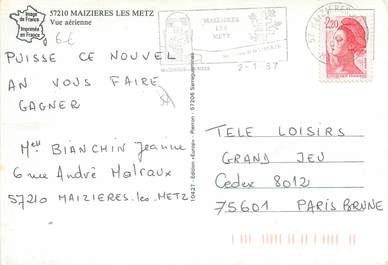 57210 MAIZIERES LES METZ
Vue aérienne
Image
de France
Imprimée
en France
6€
PUISSE CE NOUVEL
AN VOUS FAIRE
GAGNER
Mell BIANCHIN Jeanne
6 rue André Malraux
57210 MAIZIERES-les-METZ
10427 - Edition «Europ» Pierron - 57206 Sarreguemines
MAIZIERES
LES
METZ
2-1 87
2,20
TELE LOISIRS
GRAND JEU
Cedex 8012
75601 PARIS BRUNE